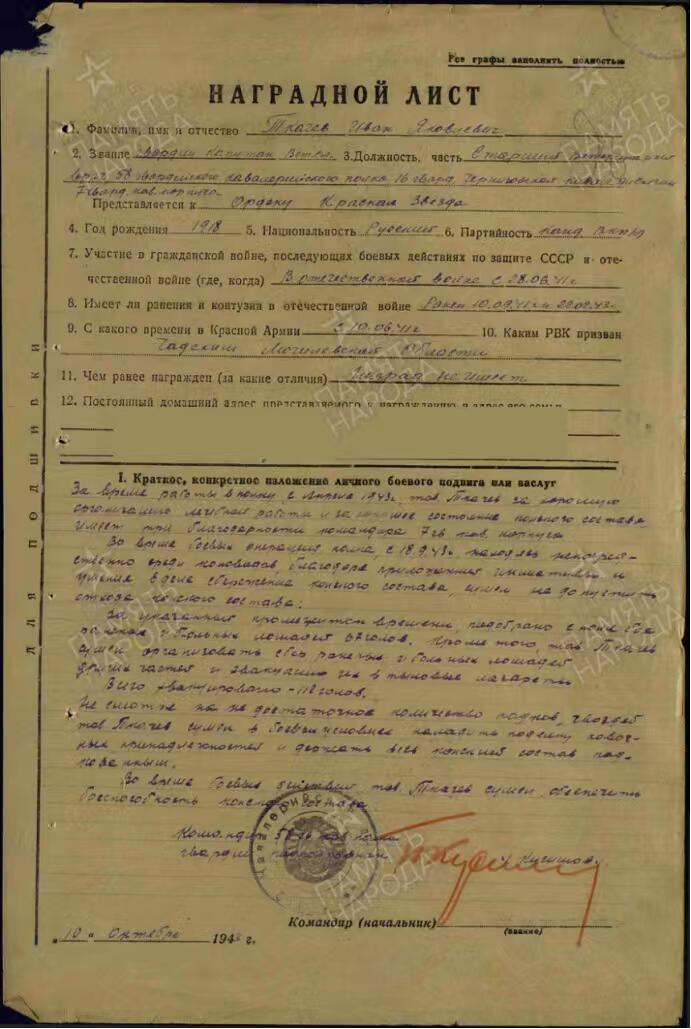 Все графы заполнить полностью
НАГРАДНОЙ ЛИСТ
1. Фамилия, имя и отчество Ткачев Иван Яковлевич
2. Звание Гвардии Капитан Вет. 3. Должность, часть Старший ветеринарный
врач 58 гвардейского кавалерийского полка 16 гвард. Черниговской кавал. дивизии
7 гвард. кав. корпуса
Представляется к Ордену Красная Звезда
4. Год рождения 1918 5. Национальность Русский 6. Партийность канд ВКП/б/
7. Участие в гражданской войне, последующих боевых действиях по защите СССР и оте-
чественной войне (где, когда) В отечественной войне с 28.06.41г.
8. Имеет ли ранения и контузии в отечественной войне Ранен 10.09.41 и 22.02.43г.
9. С какого времени в Красной Армии с 10.06.41г 10. Каким РВК призван
Могилевской области
11. Чем ранее награжден (за какие отличия) Наград не имеет
12. Постоянный домашний адрес представляемого к награждению и адрес его семьи
ДЛЯ ПОДШИВКИ
I. Краткое, конкретное изложение личного боевого подвига или заслуг
За время работы в полку с Апреля 1943г. тов. Ткачев за хорошую
организацию лечебной работы и за хорошее состояние конского состава
имеет три благодарности командира 7 гв кав. корпуса
Во время боевых операций полка, с 18.9.43г. находясь непосред-
ственно среди коноводов, благодаря инициативы и
умения в деле сбережения конского состава, сумел не допустить
отхода конского состава.
За указанный промежуток времени, подобрано с поля боя
раненых и больных лошадей 67 голов. Кроме того, тов. Ткачев
сумел организовать сбор раненых и больных лошадей
других частей и эвакуацию их в тыловые лазареты
Всего эвакуировано голов.
Не смотря на не достаточное количество подков, гвоздей
тов. Ткачев сумел в боевых условиях наладить ковоч-
ных принадлежностей и держать весь конский состав под-
кованным.
Во время боевых действий тов. Ткачев сумел обеспечить
боеспособность конского состава
Командир 58 гв кав. полка
гвардии подполковник
Командир (начальник)
(звание)
"10" Октября 1943 г.
ПАМЯТЬ НАРОДА